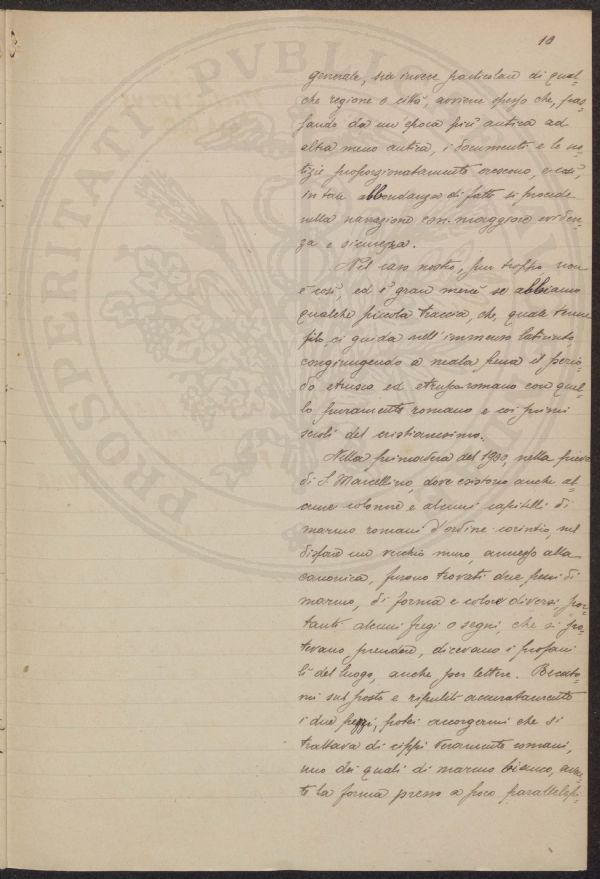 PROSPERITATI PVBLICAE
10
generale, sia invece particolare di qual-
che regione o città, avviene spesso che, pas-
sando da un epoca più antica ad
altra meno antica, i documenti e le no-
tizie proporzionatamente crescono, e così,
in tale abbondanza di fatti si procede
nella narrazione con maggiore eviden-
za e sicurezza.
Nel caso nostro, pur troppo non
è così, ed è gran mercè se abbiamo
qualche piccola traccia, che, quale tenue
filo ci guida nell'immenso labirinto,
congiungendo a mala pena il perio-
do etrusco ed etrusco-romano con quel-
lo puramente romano e coi primi
secoli del cristianesimo.
Nella primavera del 1930, nella pieve
di S. Marcellino, dove esistono anche al-
cune colonne e alcuni capitelli di
marmo romani d'ordine corintio, nel
disfare un vecchio muro, annesso alla
canonica, furono trovati due pezzi di
marmo, di forma e colore diversi, por-
tanti alcuni fregi o segni, che si po-
tevano prendere, dicevano i profani
lì del luogo, anche per lettere. Recato-
mi sul posto e ripuliti accuratamente
i due pezzi, potei accorgermi che si
trattava di cippi veramente romani,
uno dei quali di marmo bianco, aven-
te la forma presso a poco parallelepi-